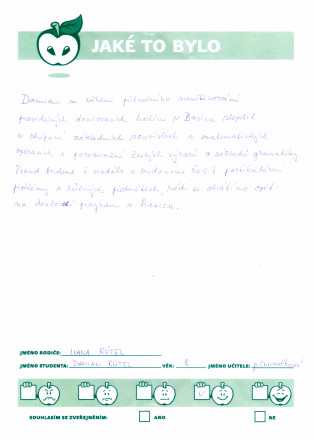 JAKÉ TO BYLO
Damian se během půlročního navštěvování
pravidelných doučovacích hodin v Basicu zlepšil
v chápání základních souvislostí v matematických
operacích a porozumění českých výrazů a základů gramatiky.
Pokud budeme i nadále v budoucnu řešit partikulární
problémy v různých předmětech, rádi se obrátíme opět
na doučovací program v Basicu.
JMÉNO RODIČE: IVANA RŮTEL
JMÉNO STUDENTA: DAMIAN RŮTEL VĚK: 8 JMÉNO UČITELE:
SOUHLASÍM SE ZVEŘEJNĚNÍM: ANO NE